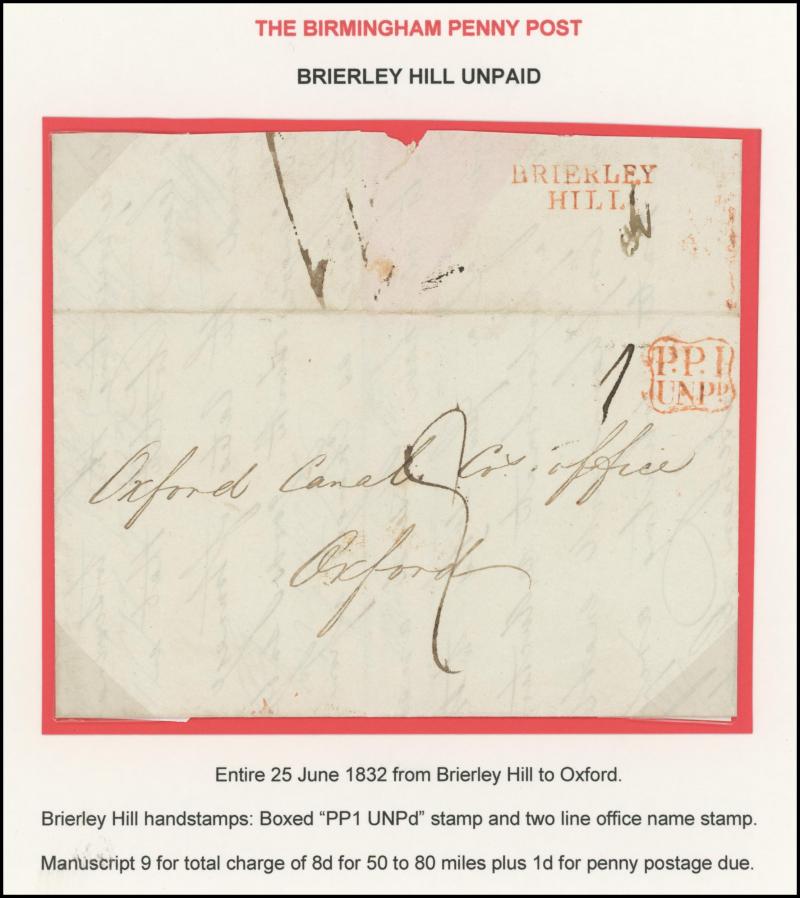 THE BIRMINGHAM PENNY POST
BRIERLEY HILL UNPAID
BRIERLEY
HILL
1
P.P.1
UNPD
9
Oxford Canal Cos. office
Oxford
Entire 25 June 1832 from Brierley Hill to Oxford.
Brierley Hill handstamps: Boxed “PP1 UNPd” stamp and two line office name stamp.
Manuscript 9 for total charge of 8d for 50 to 80 miles plus 1d for penny postage due.